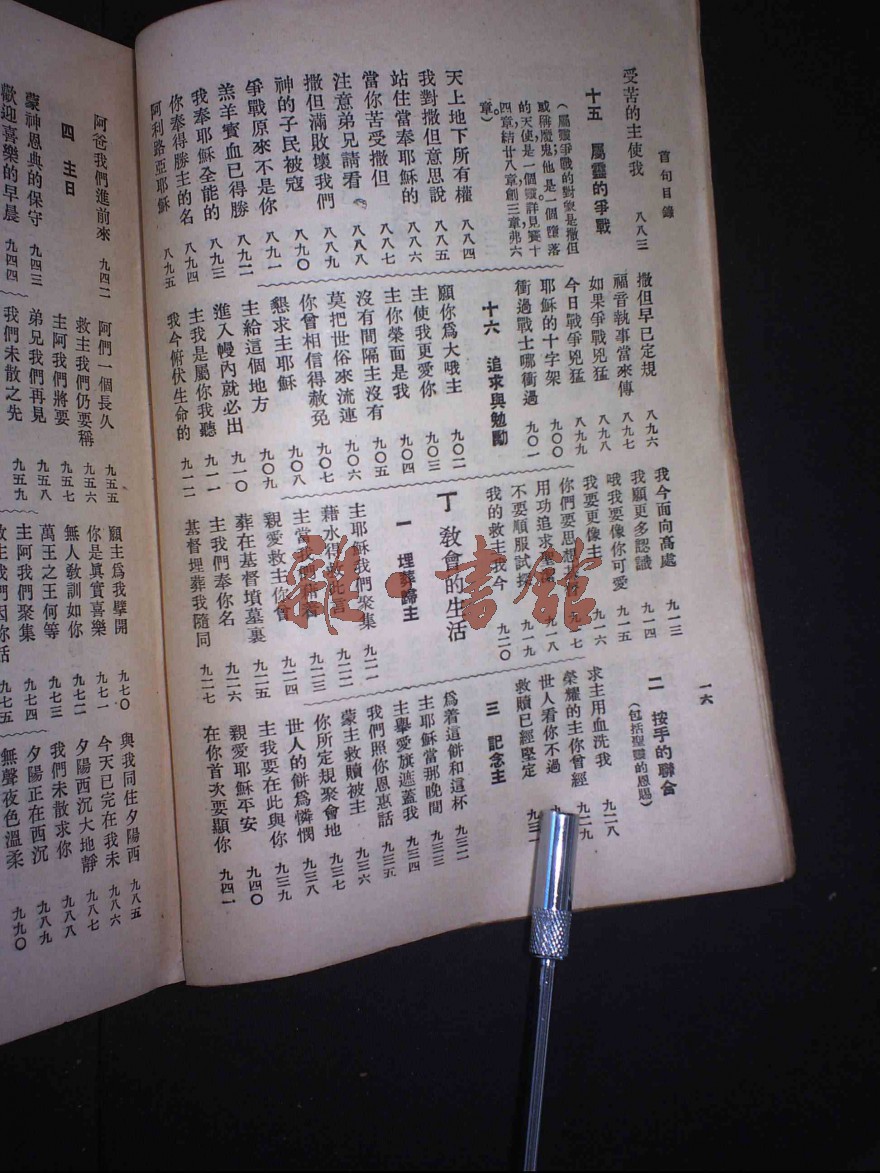 首句目錄
一六
受苦的主使我 八八三
十五 屬靈的爭戰
(屬靈爭戰的對象是撒但
或稱魔鬼他是一個墮落
的天使是一個靈詳見賽十
四章結廿八章創三章弗六
章。)
天上地下所有權 八八四
我對撒但意思說 八八五
站住當奉耶穌的 八八六
當你苦受撒但 八八七
注意弟兄請看 八八八
撒但滿敗壞我們 八八九
神的子民被寇 八九〇
爭戰原來不是你 八九一
羔羊寶血已得勝 八九二
我奉耶穌全能的 八九三
你奉得勝主的名 八九四
阿利路亞耶穌 八九五
撒但早已定規 八九六
福音執事當來傳 八九七
如果爭戰兇猛 八九八
今日戰爭兇猛 八九九
耶穌的十字架 九〇〇
衝過戰士哪衝過 九〇一
十六 追求與勉勵
願你爲大哦主 九〇二
主使我更愛你 九〇三
主你榮面是我 九〇四
沒有間隔主沒有 九〇五
莫把世俗來流連 九〇六
你曾相信得赦免 九〇七
懇求主耶穌 九〇八
主給這個地方 九〇九
進入幔內就必出 九一〇
主我是屬你我聽 九一一
我今俯伏生命的 九一二
我今面向高處 九一三
我願更多認識 九一四
哦我要像你可愛 九一五
我要更像主 九一六
你們要思想 九一七
用功追求 九一八
不要順服試探 九一九
我的救主我今 九二〇
丁 教會的生活
一 埋葬歸主
主耶穌我們聚集 九二一
藉水得救 九二二
主當我 九二三
親愛救主你會 九二四
葬在基督墳墓裏 九二五
主我們奉你名 九二六
基督埋葬我隨同 九二七
二 按手的聯合
(包括聖靈的恩賜)
求主用血洗我 九二八
榮耀的主你曾經 九二九
世人看你不過
救贖已經堅定
三 記念主
爲着這餅和這杯 九三二
主耶穌當那晚間 九三三
主舉愛旗遮蓋我 九三四
我們照你恩惠話 九三五
蒙主救贖被主 九三六
你所定規聚會地 九三七
世人的餅爲憐憫 九三八
主我要在此與你 九三九
親愛耶穌平安 九四〇
在你首次要顯你 九四一
阿爸我們進前來 九四二
四 主日
蒙神恩典的保守 九四三
歡迎喜樂的早晨 九四四
阿們一個長久 九五五
救主我們仍要稱 九五六
主阿我們將要 九五七
弟兄我們再見 九五八
我們未散之先 九五九
願主爲我擘開 九七〇
你是真實喜樂 九七一
無人敎訓如你 九七二
萬王之王何等 九七三
主阿我們聚集 九七四
救主我們因你話 九七五
與我同住夕陽西 九八五
今天已完在我未 九八六
夕陽西沉大地靜 九八七
我們未散求你 九八八
夕陽正在西沉 九八九
無聲夜色溫柔 九九〇
雜·書館